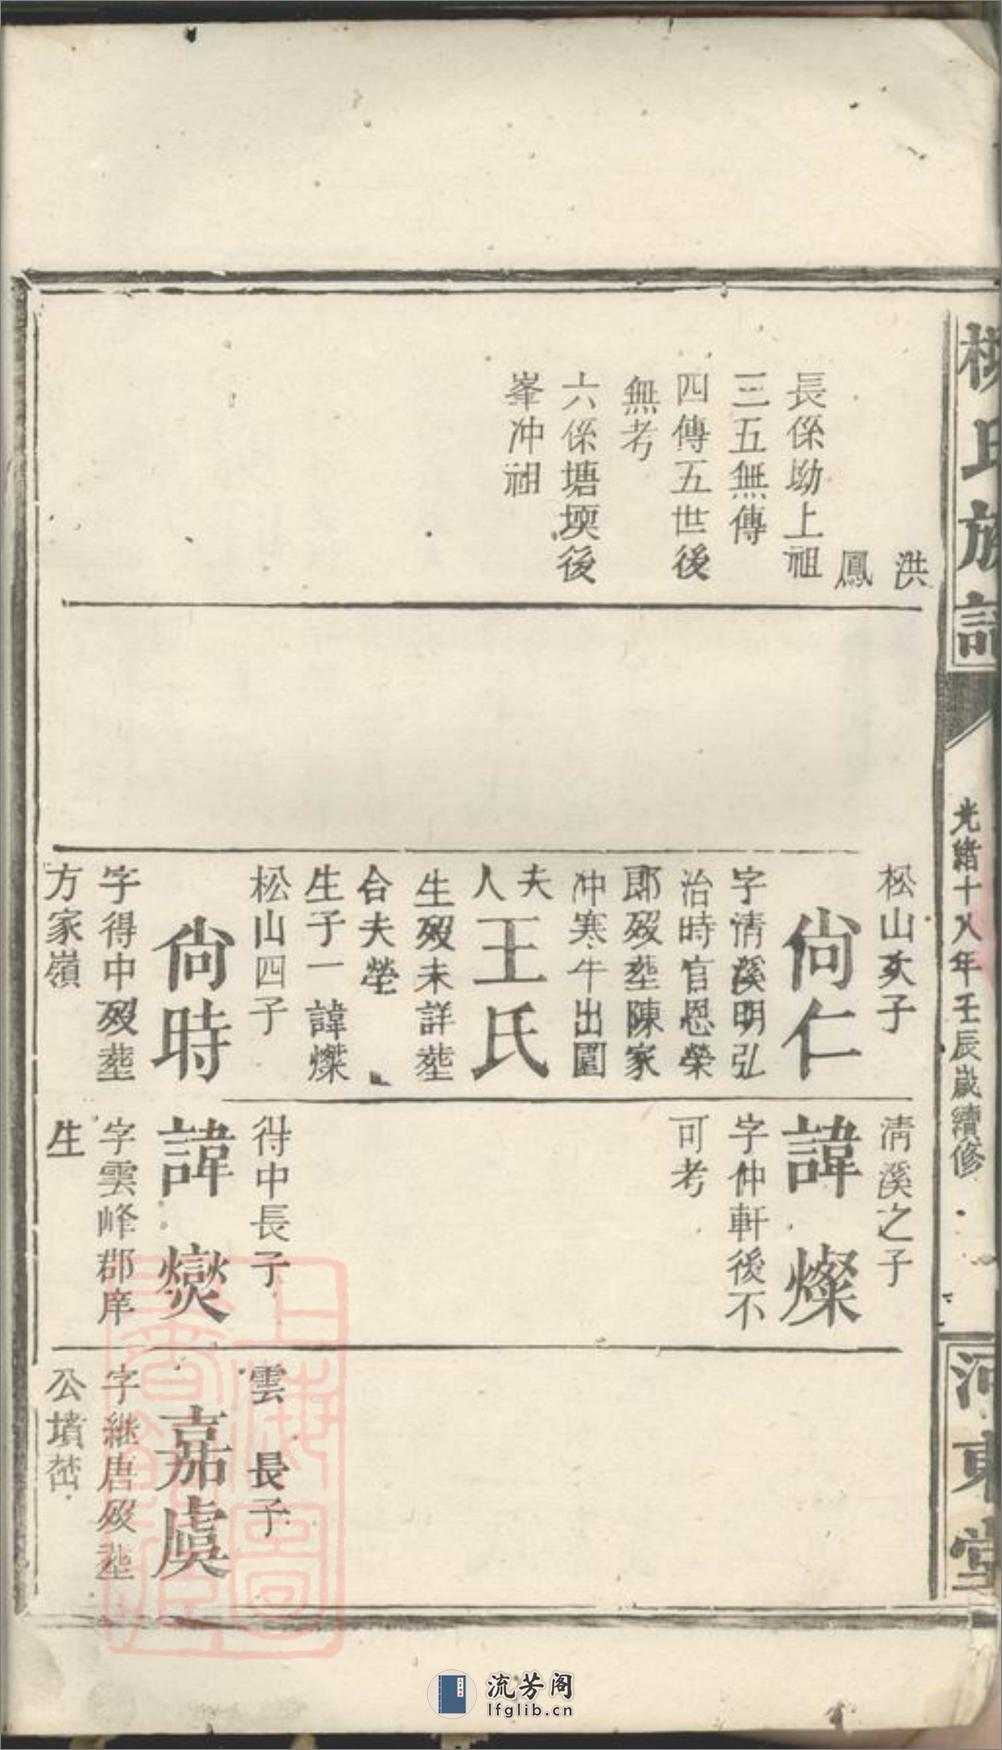 柳氏族譜
光緒十八年壬辰歲續修
河東堂
洪
鳳
長係坳上祖
三五無傳
四傳五世後
無考
六係塘堧後
峯冲祖
松山次子
尙仁
字淸溪明弘
治時官恩榮
郎歿塟陳家
冲寒牛出圍
夫人王氏
生歿未詳塟
合夫塋
生子一諱燦
松山四子
尙時
字得中歿塟
方家嶺
淸溪之子
諱燦
字仲軒後不
可考
得中長子
諱爕
字雲峰郡庠
生
雲 長子
嘉虞
字継唐歿塟
公墳
上海圖書館藏
流芳阁
lfglib.cn